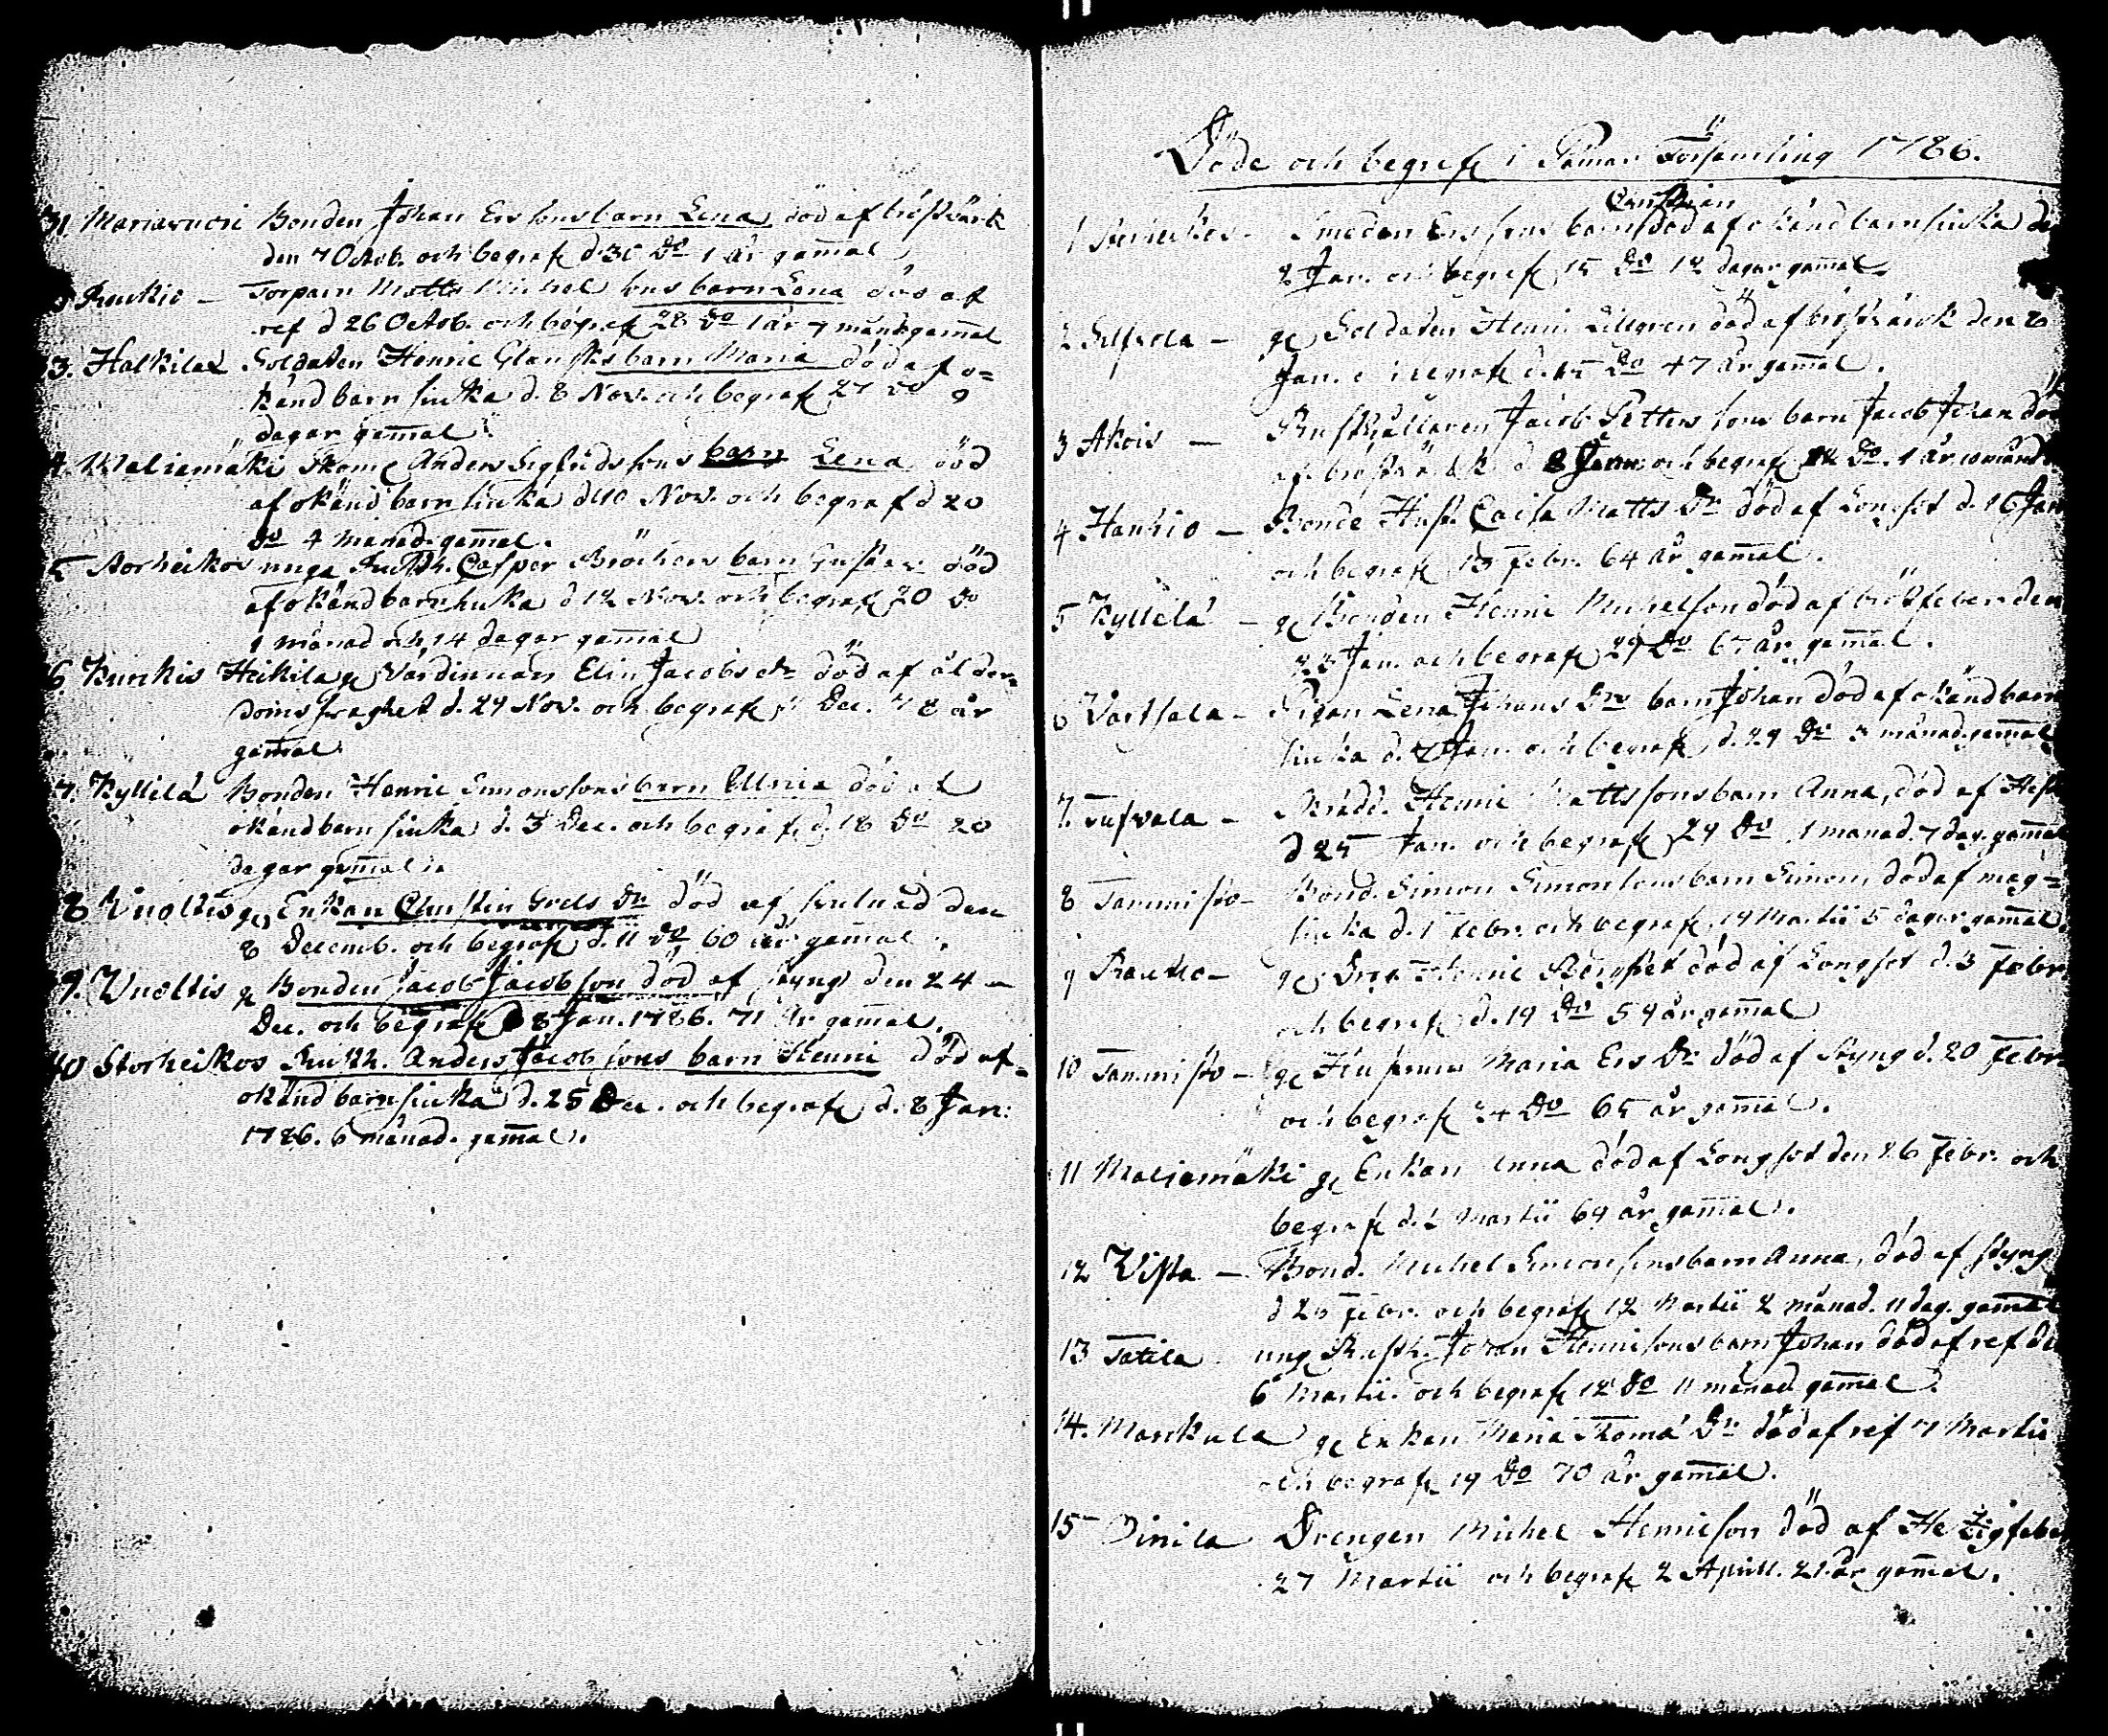 31 Mariavuori Bonden Johan Ers sons barn Lena död af bröstvärk
den 7 Octob. och begrafn d 30 Do 1 år gamal
Raukio — Torparn Matts Michelsons barn Lena död af
ref d 26 Octob. och begrafn 28 Do 1 år 7 månad gamal
3. Halkilax Soldaten Henric Glansks barn Maria död af o=
känd barnsiuka d. 8 Nov. och begrafn 27 Do 9
dagar gamal
4. Waliamäki Skom Anders Sigfridssons barn Lena död
af okänd barnsiuka d 10 Nov. och begraf d 20
Do 4 månad. gamal.
5 Storheikos unga Rusth. Casper Bröckers barn Gustav död
af okänd barnsiuka d 12 Nov. och begrafn 20 Do
1 månad och 14 dagar gamal
6 Kurckis Heikila g Värdinnan Elin Jacobs dr död af ålder=
doms svaghet d. 29 Nov. och begrafn Dec. 78 år
gamal
7. Kyllilä Bonden Henric Simonssons barn Ulrica död af
okänd barnsiuka d. 3 Dec. och begrafn d. 18 Do 20
dagar gamal.
8 Vuoltis g Enkan Christin Grels dr död af svulnad den
8 Decemb. och begrafn d. 11 Do 60 år gamal.
9. Vuoltis g Bonden Jacob Jacobson död af styng den 24
Dec. och begrafn d 8 Jan. 1786. 71 år gamal.
40 Storheikos Rusth. Anders Jacobsons barn Henric död af
okänd barnsiuka d. 25 Dec. och begrafn d. 8 Jan:
1786. 6 månad. gamal.
Döde och begrafn i Pämar Församling 1786.
Christian
1 Storheikos — Smeden Ers sons barn död af okänd barnsiuka de
2 Jan. och begrafn 15 Do 12 dagar gamal.
2 — g Soldaten Henric Lillgren död af bröstvärk den 8
Jan. och begrafn d. 15 Do 47 år gamal.
3 Akois — Rusthållaren Jacob Petters sons barn Jacob Johan död
af bröstvärk d 8 Janu. och begrafn 12 Do. 1 år 10 månad
4 Hanhio — Bonde Hust. Caisa Matts Dr död af Longsot d. 16 Jan
och begrafn 13 Febr. 64 år gamal.
5 Kyllilä — g Bonden Henric Michelson död af bröstfeber den
23 Jan. och begrafn 29 Do 67 år gamal.
6 Vartsala — Pigan Lena Johans Drs barn Johan död af okänd barn
siuka d. 7 Jan. och begrafn d. 29 Do 3 månad. gamal
7. Tufvala — Skrädd. Henric Mattssons barn Anna, död af
d 25 Jan. och begrafn 29 Do 1 månad. 7 dag. gamal
8 Tammisto — Bond. Simon Simonsons barn Simon, död af mag=
siuka d. 1 Febr. och begrafn 19 Martii 5 dagar gamal.
9 Raukko — g Henric död af Longsot d. 3 Febr
och begrafn d. 19 Do 59 år gamal
10 Tammisto — g Hustrun Maria Ers Dr död af Styng d. 20 Febr
och begrafn 24 Do 65 år gamal.
11 Maliemäki g Enkan Anna död af Longsot den 26 Febr. och
begrafn d. 2 Martii 69 år gamal.
12 Vista — Bond. Michel Simonsons barn Anna, död af styng
d 25 Febr. och begrafn 12 Martii 2 månad. 11 dag. gamal
13 Tatila ung Rusth. Johan Henricsons barn Johan död af ref de
6 Martii. och begrafn 12 Do 11 månad gamal
14. Marckula g Enkan Maria Thomæ Dr död af ref 7 Martii
och begrafn 19 Do 70 år gamal.
15 Vinila Drengen Michel Henricson död af Hetzigfeber
27 Martii och begrafn 2 April. 21 år gamal.